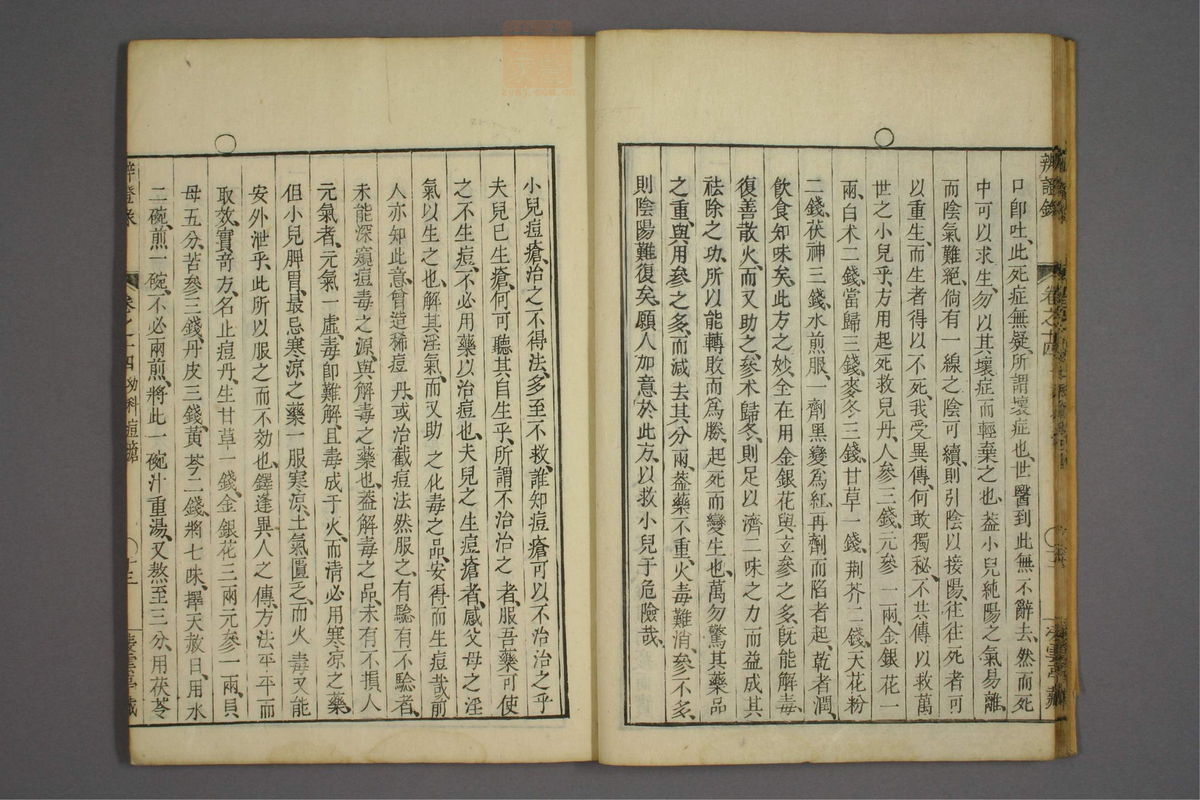 辨證錄
卷之十四
口卽吐、此死症無疑、所謂壞症也、世醫到此無不辭去、然而死
中可以求生、勿以其壞症而輕棄之也、蓋小兒純陽之氣易離、
而陰氣難絕、倘有一線之陰可續、則引陰以接陽、往往死者可
以重生、而生者得以不死、我受異傳、何敢獨秘、不共傳以救萬
世之小兒乎、方用起死救兒丹、人參三錢、元參一兩、金銀花一
兩、白朮二錢、當歸三錢、麥冬三錢、甘草一錢、荆芥二錢、天花粉
二錢、茯神三錢、水煎服、一劑黑變爲紅、再劑而陷者起、乾者潤、
飲食知味矣、此方之妙、全在用金銀花與元參之多、旣能解毒、
復善散火、而又助之參朮歸冬、則足以濟二味之力、而益成其
祛除之功、所以能轉敗而爲勝、起死而變生也、萬勿驚其藥品
之重、與用參之多、而減去其分兩、葢藥不重、火毒難消、參不多、
則陰陽難復矣、願人加意於此方、以救小兒于危險哉、
小兒痘瘡、治之不得法、多至不救、誰知痘瘡可以不治治之乎
夫兒已生瘡、何可聽其自生乎、所謂不治治之者、服吾藥可使
之不生痘、不必用藥以治痘也、夫兒之生痘瘡者、感父母之淫
氣以生之也、解其淫氣、而又助之化毒之品、安得而生痘哉、前
人亦知此意、曾造稀痘丹、或治截痘法、然服之有驗有不驗者、
未能深窺痘毒之源、與解毒之藥也、葢解毒之品、未有不損人
元氣者、元氣一虛、毒卽難解、且毒成于火、而清必用寒凉之藥、
但小兒脾胃、最忌寒涼之藥、一服寒凉、土氣匱乏、而火毒又能
安外泄乎、此所以服之而不効也、鐸逢異人之傳、方法平平而
取效、實奇、方名止痘丹、生甘草一錢、金銀花三兩、元參一兩、貝
母五分、苦參三錢、丹皮三錢、黃芩二錢、將七味、擇天赦日、用水
二碗、煎一碗、不必兩煎、將此一碗汁重湯、又熬至三分、用茯苓
卷之十四 幼科痘瘡
十三